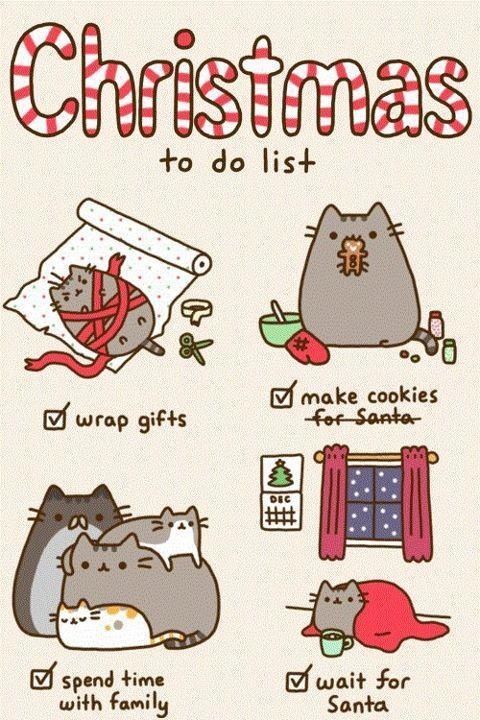 Christmas
to do list
wrap gifts
make cookies
for Santa
DEC
spend time
with family
wait for
Santa